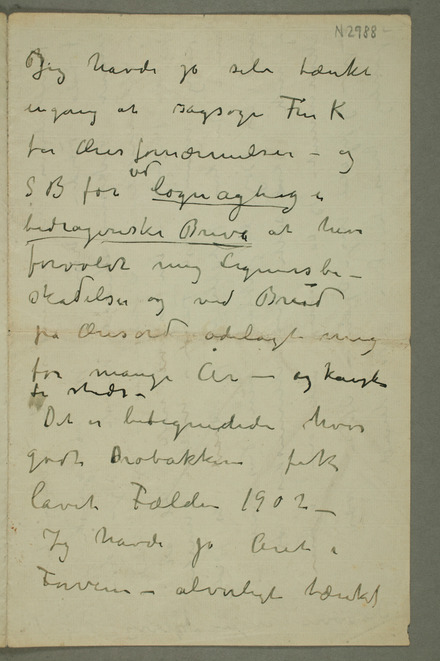 N2988
Jeg havde jo selv tænkt
engang at sagsøge Fru K
for Æresfornærmelser – og
S B for ved løgnagtige &
bedragerske Breve at have
forvoldt mig Legemsbe–
skadelser og ved Brud
på Æresord ødelagt mig
for mange År – og kanske
for stedse –
Det er betegnende hvor
godt Drobakken fik
lavet Fælden 1902 –
Jeg havde jo Året i
Forveien – alvorligt tænkt